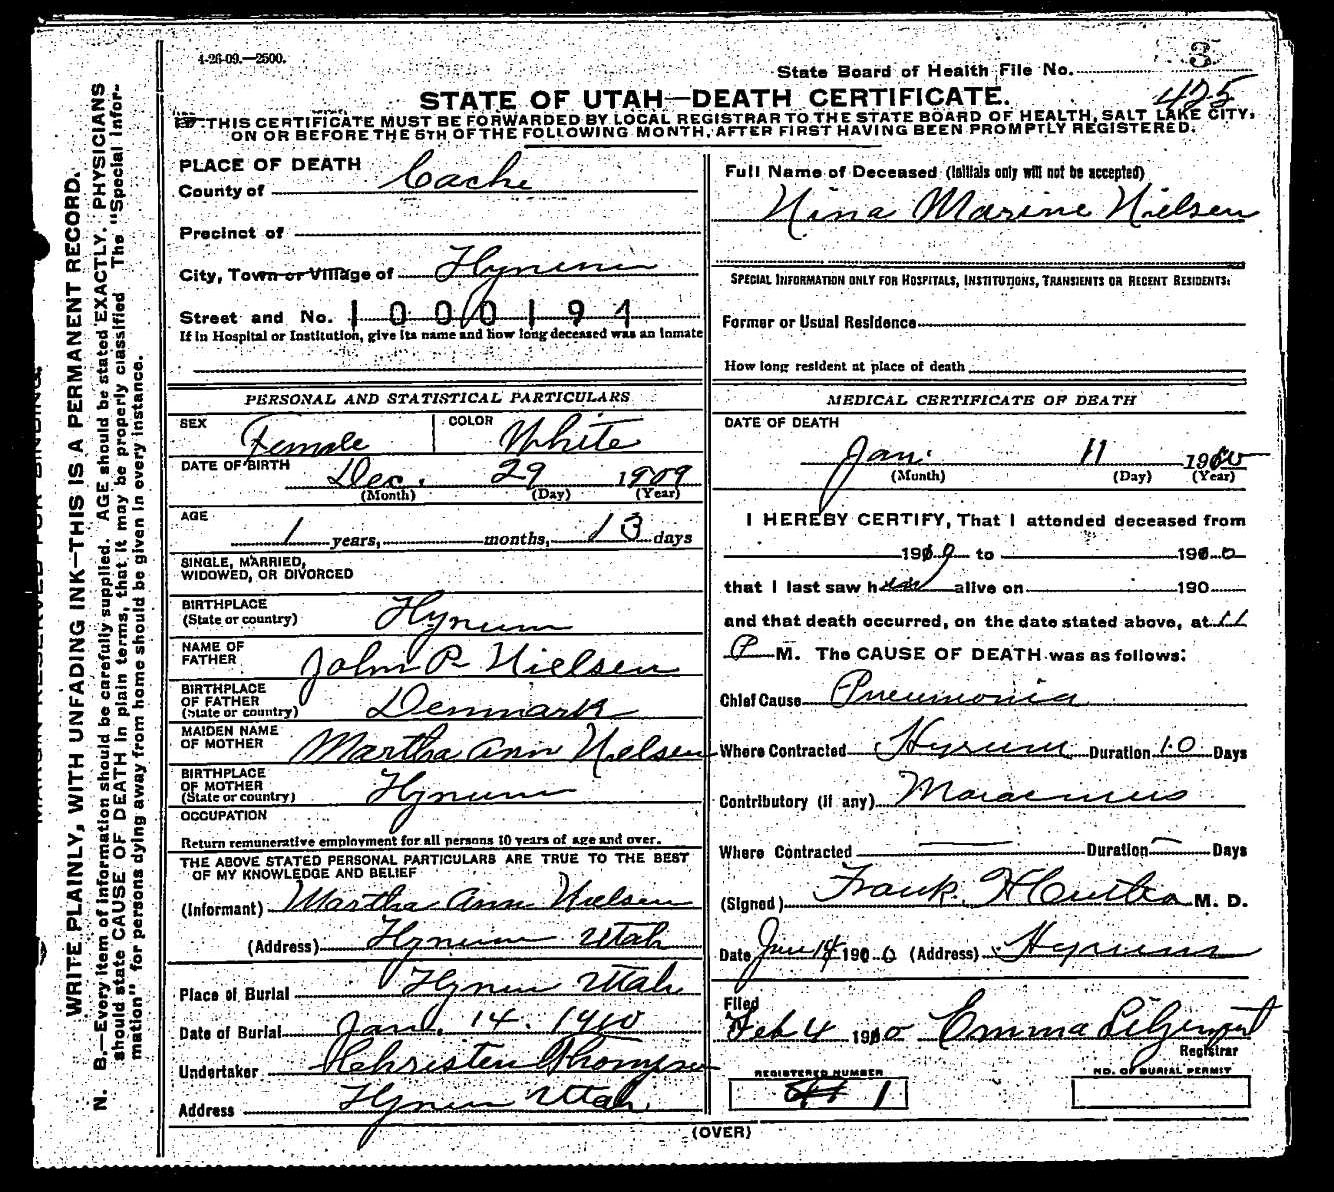 4-26-09.—2500.
3
State Board of Health File No.
425
STATE OF UTAH—DEATH CERTIFICATE.
THIS CERTIFICATE MUST BE FORWARDED BY LOCAL REGISTRAR TO THE STATE BOARD OF HEALTH, SALT LAKE CITY,
ON OR BEFORE THE 5TH OF THE FOLLOWING MONTH, AFTER FIRST HAVING BEEN PROMPTLY REGISTERED.
WRITE PLAINLY, WITH UNFADING INK—THIS IS A PERMANENT RECORD.
N. B.—Every item of information should be carefully supplied. AGE should be stated EXACTLY. PHYSICIANS
should state CAUSE OF DEATH in plain terms, that it may be properly classified. The "Special Infor-
mation" for persons dying away from home should be given in every instance.
PLACE OF DEATH
County of Cache
Precinct of
City, Town or Village of Hyrum
Street and No. 1000194
If in Hospital or Institution, give its name and how long deceased was an inmate
PERSONAL AND STATISTICAL PARTICULARS
SEX Female COLOR White
DATE OF BIRTH Dec. 29 1909
(Month) (Day) (Year)
AGE 1 years, months, 13 days
SINGLE, MARRIED,
WIDOWED, OR DIVORCED
BIRTHPLACE
(State or country) Hyrum
NAME OF
FATHER John P. Nielsen
BIRTHPLACE
OF FATHER
(State or country) Denmark
MAIDEN NAME
OF MOTHER Martha Ann Nielsen
BIRTHPLACE
OF MOTHER
(State or country) Hyrum
OCCUPATION
Return remunerative employment for all persons 10 years of age and over.
THE ABOVE STATED PERSONAL PARTICULARS ARE TRUE TO THE BEST
OF MY KNOWLEDGE AND BELIEF
(Informant) Martha Ann Nielsen
(Address) Hyrum Utah
Place of Burial Hyrum Utah
Date of Burial Jan. 14. 1910
Undertaker
Address Hyrum Utah
Full Name of Deceased (Initials only will not be accepted)
Nina Marine Nielsen
SPECIAL INFORMATION ONLY FOR HOSPITALS, INSTITUTIONS, TRANSIENTS OR RECENT RESIDENTS:
Former or Usual Residence
How long resident at place of death
MEDICAL CERTIFICATE OF DEATH
DATE OF DEATH
Jan. 11 1910
(Month) (Day) (Year)
I HEREBY CERTIFY, That I attended deceased from
190 to 190
that I last saw her alive on 190
and that death occurred, on the date stated above, at 11
P M. The CAUSE OF DEATH was as follows:
Chief Cause Pneumonia
Where Contracted Hyrum Duration 10 Days
Contributory (if any)
Where Contracted — Duration — Days
(Signed) Frank H M. D.
Date Jan 14 1910 (Address) Hyrum
Filed
Feb 4 1910 Emma
Registrar
REGISTERED NUMBER
1
NO. OF BURIAL PERMIT
(OVER)